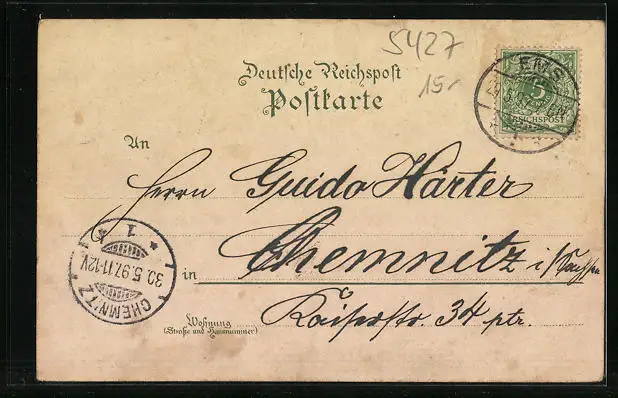 5427
15
Deutsche Reichspost
Postkarte
EMS
5
REICHSPOST
An
Herrn Guido Härter
in Chemnitz i/Sachsen
Kaiserstr. 34 ptr.
Wohnung
(Straße und Hausnummer)
1
30.5.97.11-12V
CHEMNITZ